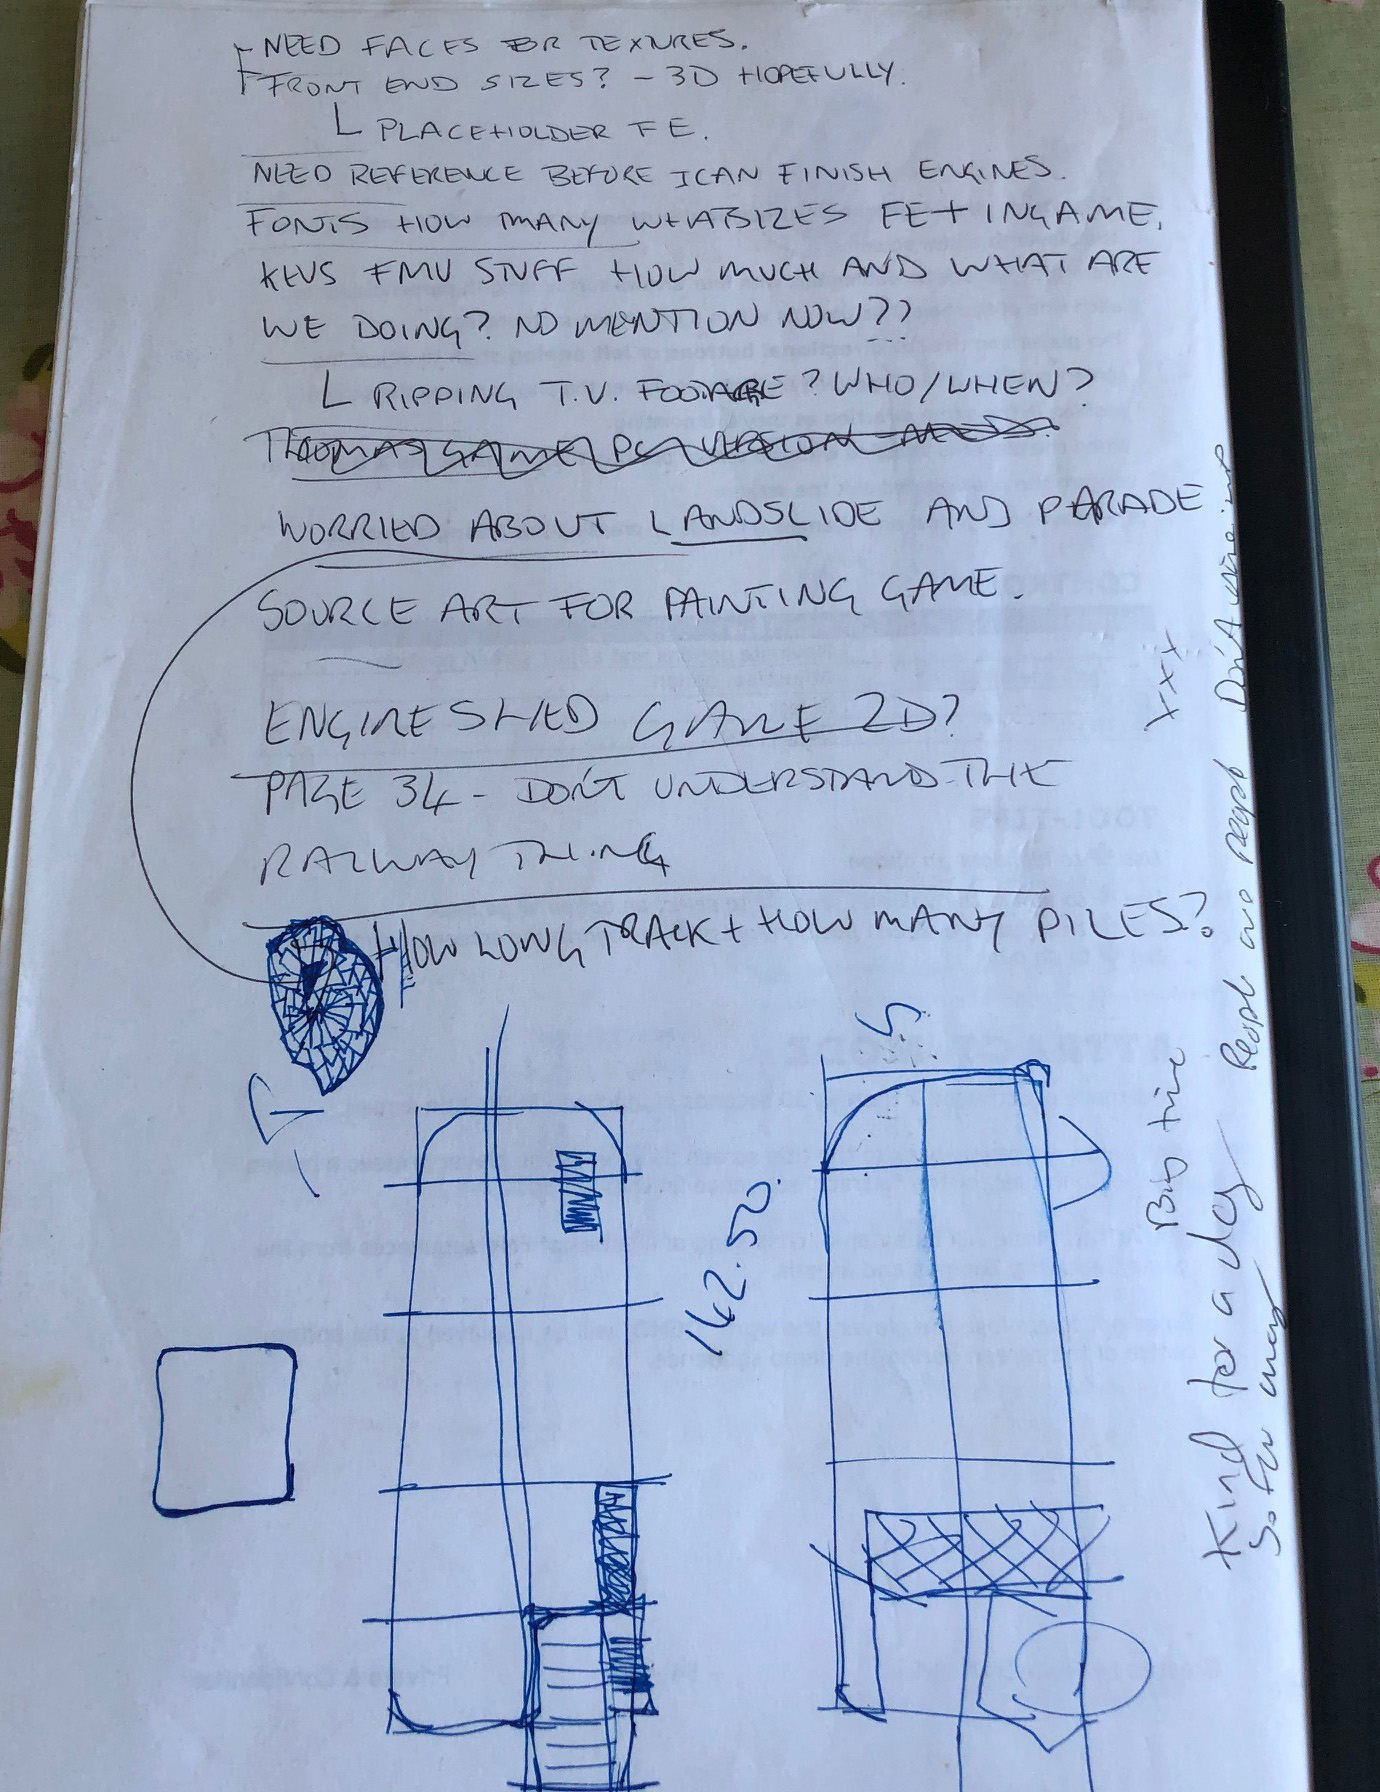 NEED FACES FOR TEXTURES.
FRONT END SIZES? - 3D HOPEFULLY.
PLACEHOLDER FE.
NEED REFERENCE BEFORE I CAN FINISH ENGINES.
FONTS HOW MANY WHAT SIZES FE + INGAME.
KEVS FMV STUFF HOW MUCH AND WHAT ARE
WE DOING? NO MENTION NOW??
RIPPING T.V. FOOTAGE? WHO/WHEN?
THOMAS GAME PC VERSION
WORRIED ABOUT LANDSLIDE AND PARADE
SOURCE ART FOR PAINTING GAME.
ENGINE SHED GAME 2D?
PAGE 34 - DON'T UNDERSTAND THE
RAILWAY THING
HOW LONG TRACK + HOW MANY PILES?
142.50.
XXX
People are people Don't
Kind for a day
So far away